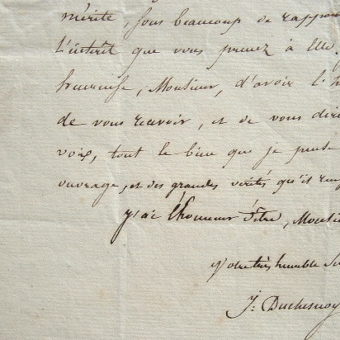 mérite, sous beaucoup de rappor
L'intérêt que vous prenez à Elle,
heureuse, Monsieur, d'avoir l'h
de vous recevoir, et de vous dire
voix, tout le bien que je pense
ouvrage, et des grandes vérités qu'il
J'ai l'honneur d'être, Monsie
Votre très humble Se
J. Duchesnoy